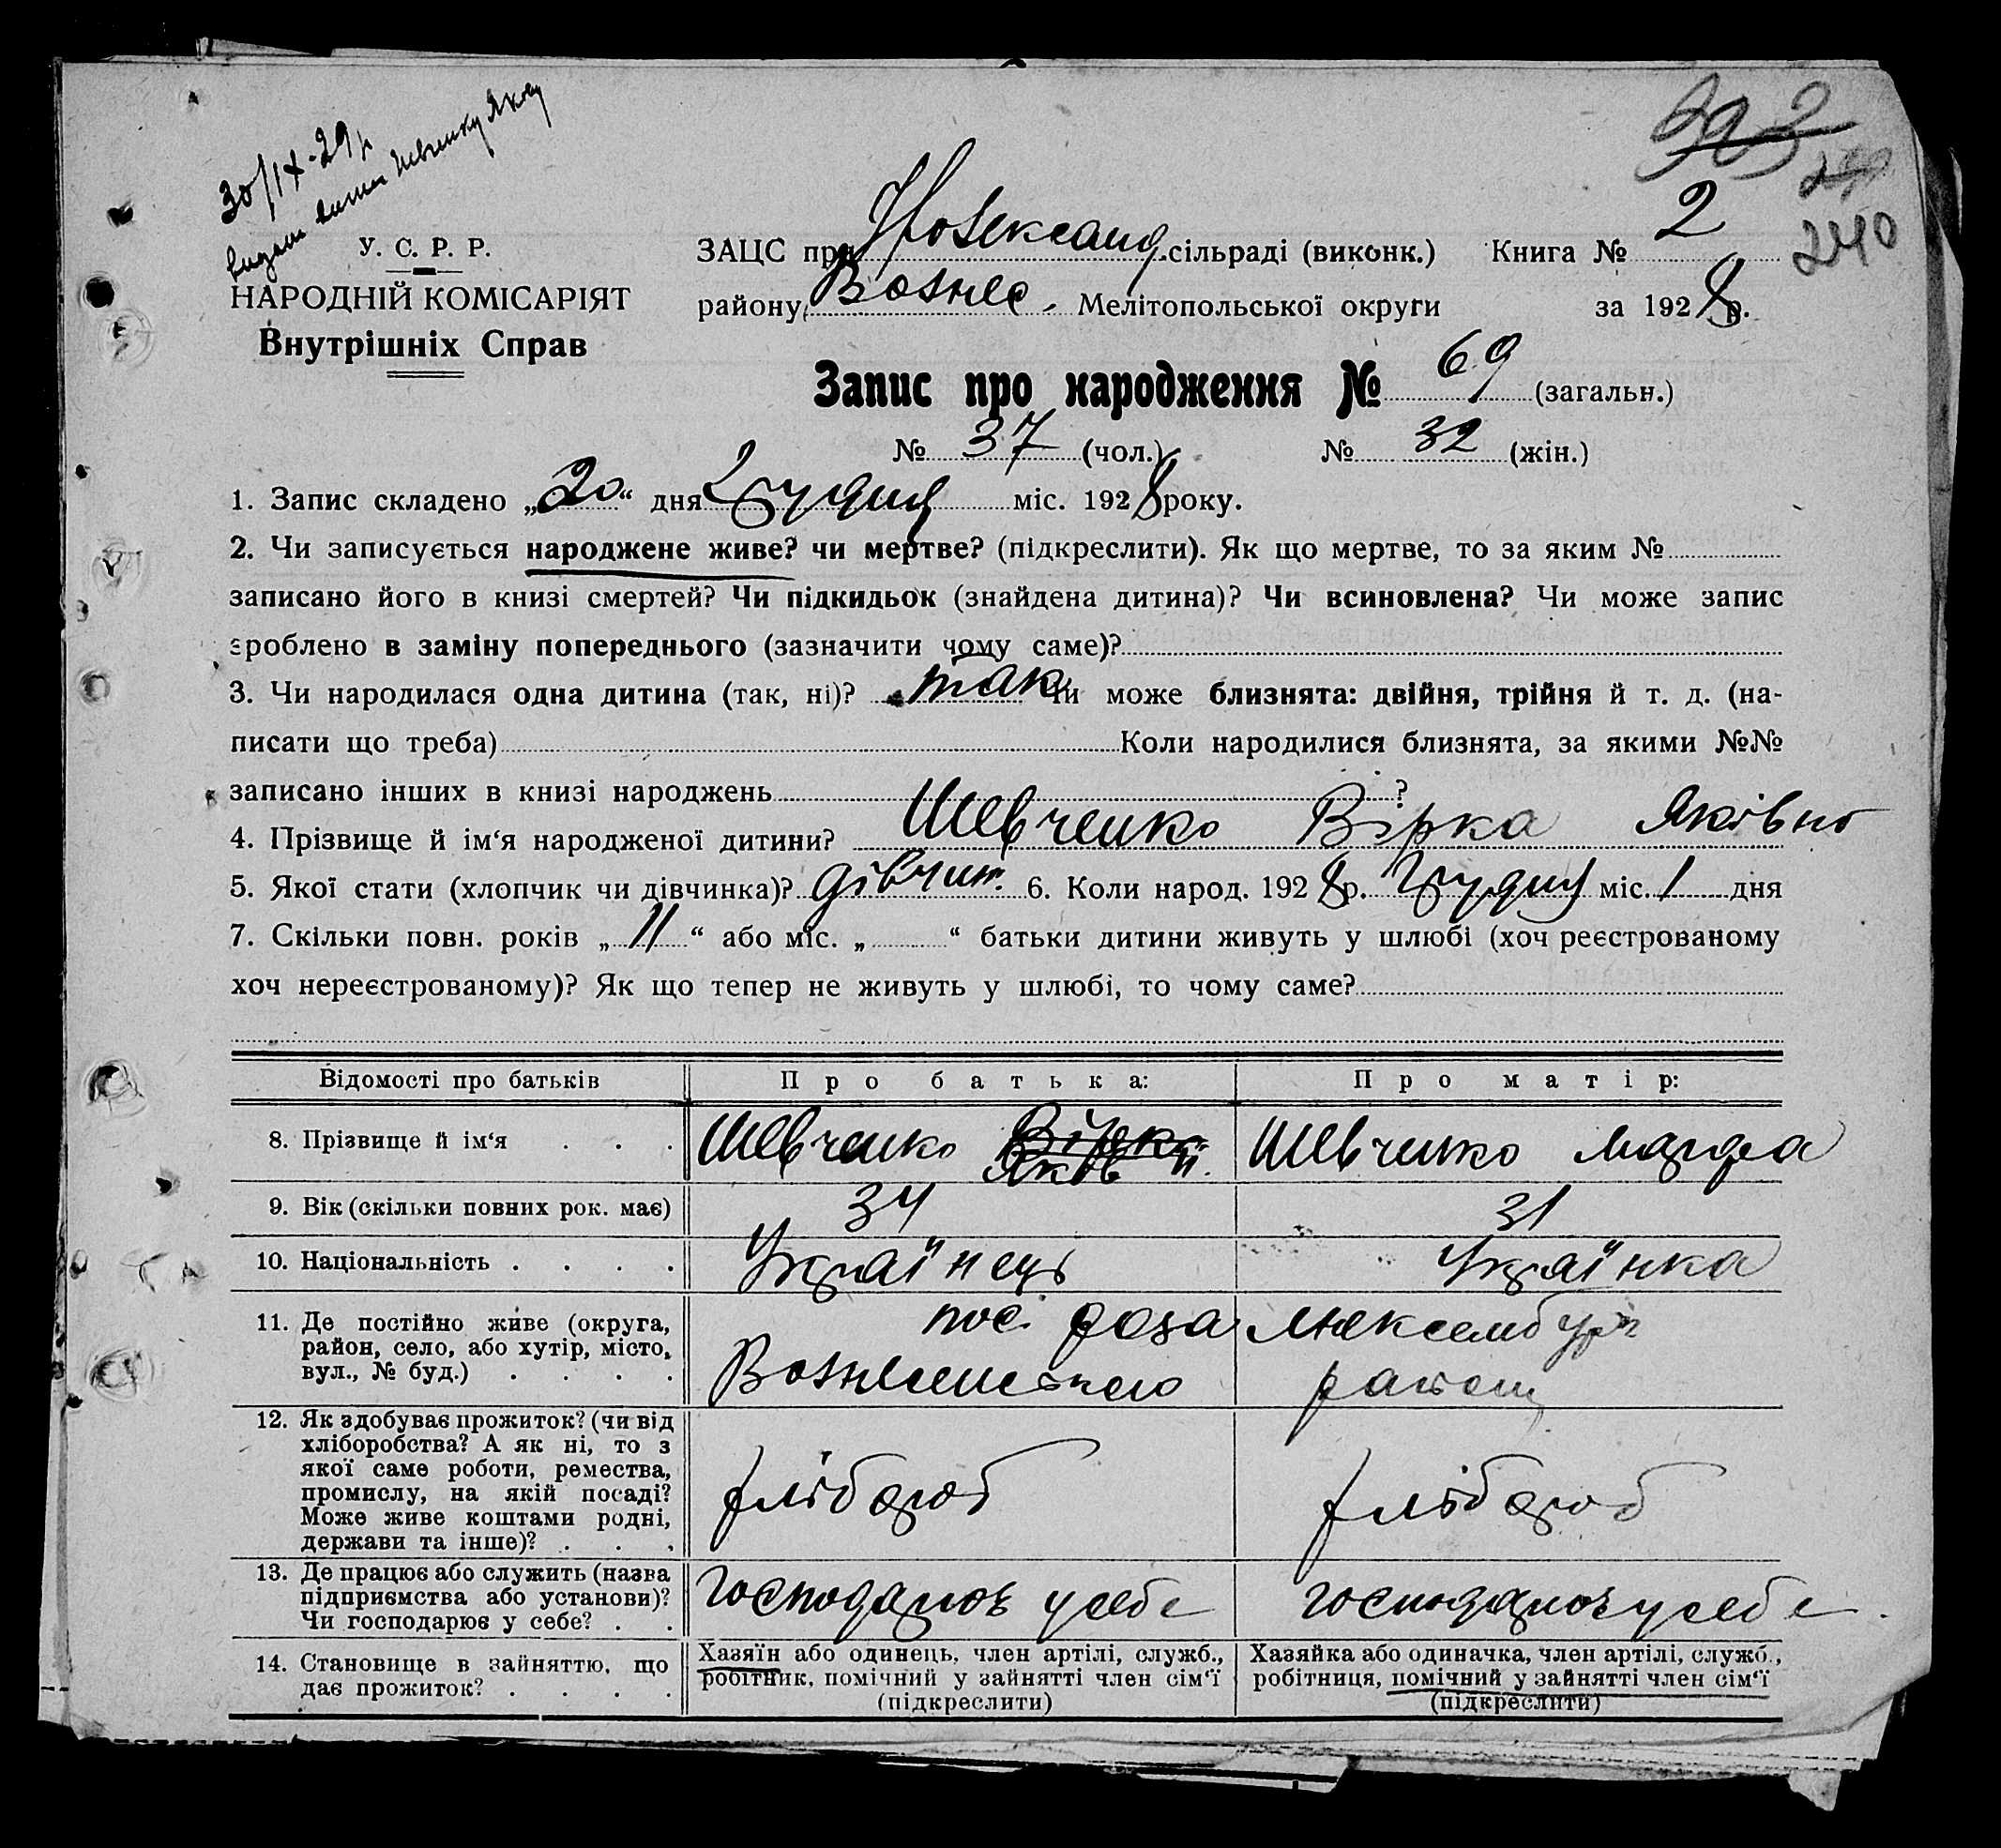 30/IX-29 р
У. С. Р. Р.
НАРОДНІЙ КОМІСАРІЯТ
Внутрішніх Справ
323
240
ЗАЦС при Новоолександ. сільраді (виконк.) Книга № 2
району Вознес. Мелітопольської округи за 1928 р.
Запис про народження № 69 (загальн.)
№ 37 (чол.) № 32 (жін.)
1. Запис складено „20“ дня Грудня міс. 1928 року.
2. Чи записується народжене живе? чи мертве? (підкреслити). Як що мертве, то за яким №
записано його в книзі смертей? Чи підкидьок (знайдена дитина)? Чи всиновлена? Чи може запис
зроблено в заміну попереднього (зазначити чому саме)?
3. Чи народилася одна дитина (так, ні)? так Чи може близнята: двійня, трійня й т. д. (на-
писати що треба) Коли народилися близнята, за якими №№
записано інших в книзі народжень ?
4. Прізвище й ім‘я народженої дитини? Шевченко Вірка Яківно
5. Якої стати (хлопчик чи дівчинка)? дівчин. 6. Коли народ. 1928 р. Грудня міс. 1 дня
7. Скільки повн. років „11“ або міс. „ “ батьки дитини живуть у шлюбі (хоч реєстрованому
хоч нереєстрованому)? Як що тепер не живуть у шлюбі, то чому саме?
Відомості про батьків Про батька: Про матір:
8. Прізвище й ім‘я . . . Шевченко Вірка Яков Шевченко Марфа
9. Вік (скільки повних рок. має) 34 31
10. Національність . . . . Українець Українка
11. Де постійно живе (округа,
район, село, або хутір, місто,
вул., № буд.) . . . .
пос. Роза Люксембург
Вознесенского району
12. Як здобуває прожиток? (чи від
хліборобства? А як ні, то з
якої саме роботи, ремества,
промислу, на якій посаді?
Може живе коштами родні,
держави та інше)? . . .
хлібороб хлібороб
13. Де працює або служить (назва
підприємства або установи)?
Чи господарює у себе? . .
господарює у себе господарює у себе
14. Становище в зайняттю, що
дає прожиток? . . . .
Хазяїн або одинець, член артілі, служб.,
робітник, помічний у зайнятті член сім‘ї
(підкреслити)
Хазяйка або одиначка, член артілі, служб.,
робітниця, помічний у зайнятті член сім‘ї
(підкреслити)